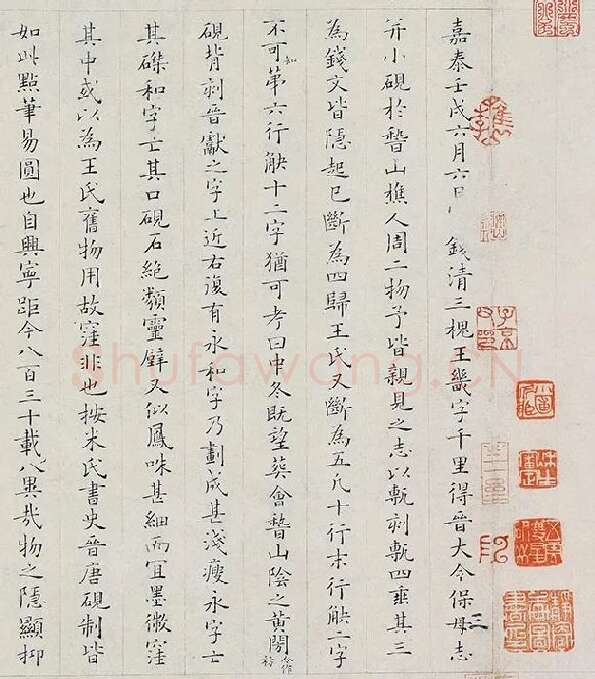 嘉泰壬戌六月六日錢清三槐王畿字千里得晉大令保母志
并小硯於稽山樵人周二物予皆親見之志以甎刻甎四垂其三
為錢文皆隱起已斷為四歸王氏又斷為五凡十行末行缺二字
不可知第六行缺十二字猶可考曰中冬既望葬會稽山陰之黃閍
今作
硯背刻晉獻之字上近右復有永和字乃劃成甚淺瘦永字亡
其磔和字亡其口硯石絶類靈壁又似鳳咮甚細而宜墨微窪
其中或以為王氏舊物用故窪非也按米氏書史晉唐硯制皆
如此點筆易圓也自興寧距今八百三十載八異哉物之隱顯抑
Shufawang.CN